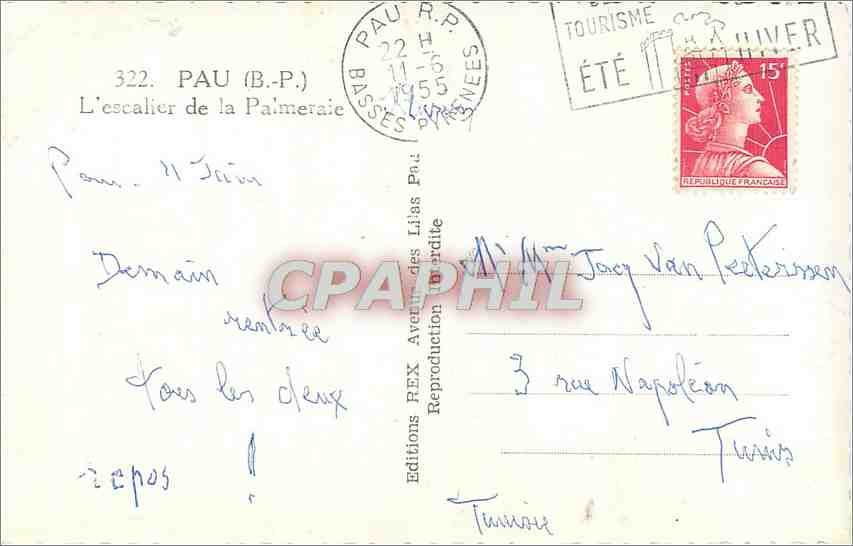 322. PAU (B.-P.)
L'escalier de la Palmeraie
PAU R.P.
22 H
11-6
1955
BASSES PYRENEES
TOURISME
ÉTÉ HIVER
POSTES
15F
REPUBLIQUE FRANCAISE
Pau. 11 Juin
Demain
rentrée
tous les deux
repos !
Editions REX Avenue des Lilas Pau
Reproduction Interdite
CPAPHIL
Mr Mme Jacq Van Peeterissen
3 rue Napoléon
Tunis
Tunisie